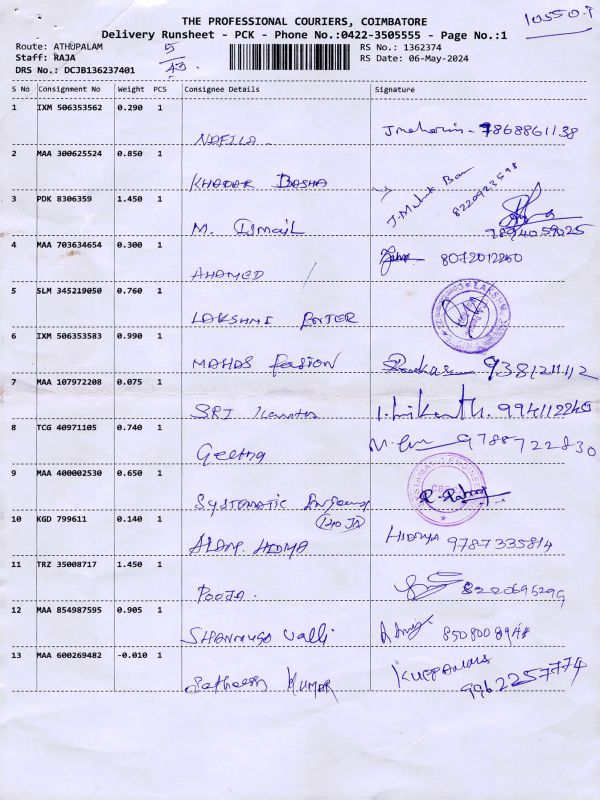 THE PROFESSIONAL COURIERS, COIMBATORE
Delivery Runsheet - PCK - Phone No.:0422-3505555 - Page No.:1
Route: ATHUPALAM
RS No.: 1362374
Staff: RAJA
RS Date: 06-May-2024
DRS No.: DCJB136237401
S No Consignment No Weight PCS Consignee Details Signature
1 IXM 506353562 0.290 1
NAFILA 7868861138
2 MAA 300625524 0.850 1
KHADAR BASHA 8220923598
3 PDK 8306359 1.450 1
M. Ismail 7894059025
4 MAA 703634654 0.300 1
AHAMED 8072012250
5 SLM 345219050 0.760 1
LAKSHMI ENTER
6 IXM 506353583 0.990 1
MAHAS Fasion
7 MAA 107972208 0.075 1
SRI
8 TCG 40971105 0.740 1
Geetha 9788722830
9 MAA 400002530 0.650 1
SYSTEMATIC
10 KGD 799611 0.140 1
HIDMA 9787335814
11 TRZ 35008717 1.450 1
POOJA
12 MAA 854987595 0.905 1
SHANMUGA Valli
13 MAA 600269482 -0.010 1
Satheesh KUMAR 9962257774